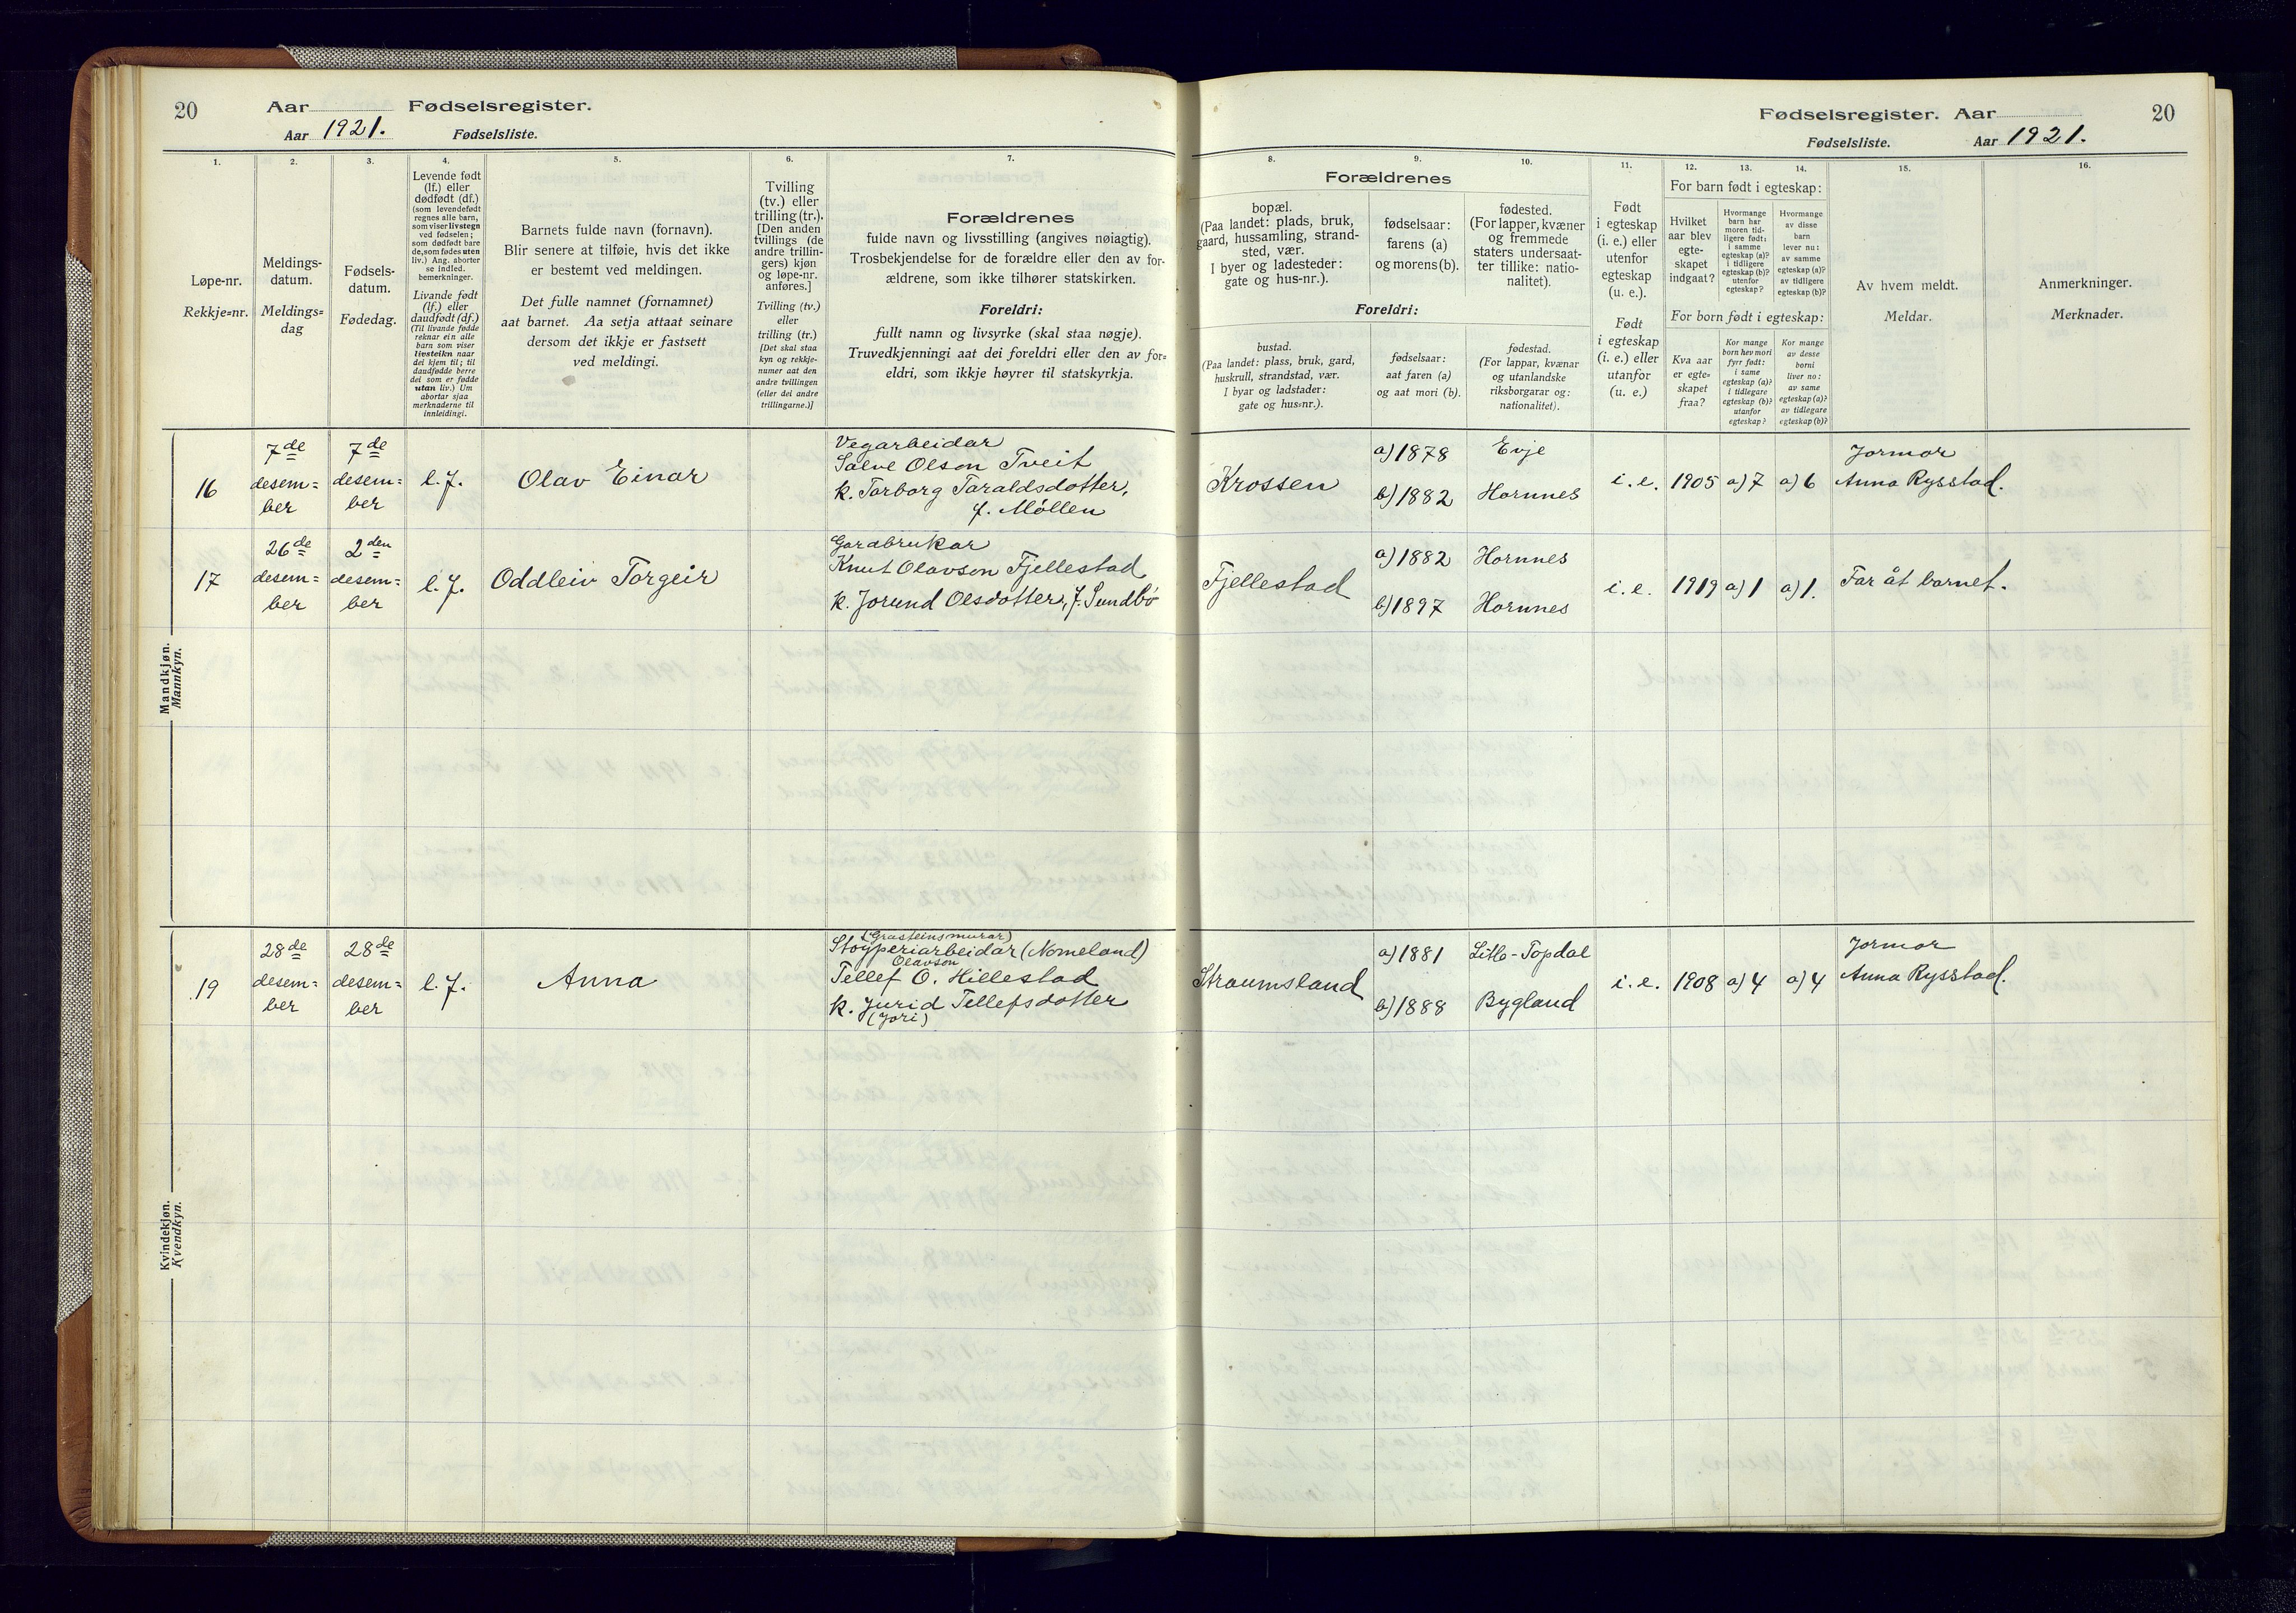 20 Aar Fødselsregister.
Aar 1921. Fødselsliste.
1. 2. 3. 4. 5. 6. 7.
Løpe-nr.
Rekkje=nr.
Meldings-
datum.
Meldings=
dag
Fødsels-
datum.
Fødedag.
Levende født
(lf.) eller
dødfødt (df.)
(som levendefødt
regnes alle barn,
som viser livstegn
ved fødselen;
som dødfødt bare
de, som fødes uten
liv.) Ang. aborter
se indled.
bemerkninger.
Livande født
(lf.) eller
daudfødt (df.)
(Til livande fødde
reknar ein alle
barn som viser
livsteikn naar
dei kjem til; til
daudfødde berre
dei som er fødde
utan liv.) Um
abortar sjaa
merknaderne til
innleidingi.
Barnets fulde navn (fornavn).
Blir senere at tilføie, hvis det ikke
er bestemt ved meldingen.
Det fulle namnet (fornamnet)
aat barnet. Aa setja attaat seinare
dersom det ikkje er fastsett
ved meldingi.
Tvilling
(tv.) eller
trilling (tr.).
[Den anden
tvillings (de
andre trillin-
gers) kjøn
og løpe-nr.
anføres.]
Tvilling (tv.)
eller
trilling (tr.)
[Det skal staa
kyn og rekkje-
numer aat den
andre tvillingen
(eller dei andre
trillingarne.)]
Forældrenes
fulde navn og livsstilling (angives nøiagtig).
Trosbekjendelse for de forældre eller den av for-
ældrene, som ikke tilhører statskirken.
Foreldri:
fullt namn og livsyrke (skal staa nøgje).
Truvedkjenningi aat dei foreldri eller den av for=
eldri, som ikkje høyrer til statskyrkja.
Mandkjøn.
Mannkyn.
16
7de
desem=
ber
7de
desem=
ber
l. f.
Olav Einar
Vegarbeidar
Salve Olson Tveit
k. Torborg Taraldsdotter,
f. Møllen
17
26de
desem=
ber
2den
desem=
ber
l. f.
Oddleiv Torgeir
Gardbrukar
Knut Olavson Fjellestad
k. Jorund Olsdotter, f. Sundbø
Kvindekjøn.
Kvendkyn.
19
28de
desem=
ber
28de
desem=
ber
l. f.
Anna
(Graasteinsmurar)
Støyperiarbeidar (Nomeland)
Olavson
Tellef O. Hillestad
k. Jurid Tellefsdotter
(Jori)
Fødselsregister. Aar 20
Fødselsliste. Aar 1921.
8. 9. 10. 11. 12. 13. 14. 15. 16.
Forældrenes
bopæl.
(Paa landet: plads, bruk,
gaard, hussamling, strand-
sted, vær.
I byer og ladesteder:
gate og hus-nr.).
fødselsaar:
farens (a)
og morens (b).
fødested.
(For lapper, kvæner
og fremmede
staters undersaat-
ter tillike: natio-
nalitet).
Foreldri:
bustad.
(Paa landet: plass, bruk, gard,
huskrull, strandstad, vær.
I byar og ladstader:
gate og hus=nr.).
fødselsaar:
aat faren (a)
og aat mori (b).
fødestad.
(For lappar, kvænar
og utanlandske
riksborgarar og:
nationalitet).
Født
i egteskap
(i. e.) eller
utenfor
egteskap
(u. e.).
Født
i egteskap
(i. e.) eller
utanfor
(u. e.)
For barn født i egteskap:
Hvilket
aar blev
egte-
skapet
indgaat?
Hvormange
barn har
moren tid-
ligere født:
i samme
egteskap (a)?
i tidligere
egteskap (b)?
utenfor
egteskap?
Hvormange
av disse
barn
lever nu:
av samme
egteskap (a)?
av tidligere
egteskap (b)?
For born født i egteskap:
Kva aar
er egte=
skapet
fraa?
Kor mange
born hev mori
fyrr født:
i same
egteskap (a)?
i tidlegare
egteskap (b)?
utanfor
egteskap?
Kor mange
av desse
borni
liver no:
av same
egteskap (a)?
av tidlegare
egteskap (b)?
Av hvem meldt.
Meldar.
Anmerkninger.
Merknader.
Krossen
a) 1878
b) 1882
Evje
Hornnes
i. e. 1905 a) 7 a) 6
Jormor
Anna Rysstad.
Fjellestad
a) 1882
b) 1897
Hornnes
Hornnes
i. e. 1919 a) 1 a) 1.
Far åt barnet.
Straumsland
a) 1881
b) 1888
Litle-Topdal
Bygland
i. e. 1908 a) 4 a) 4
Jormor
Anna Rysstad.